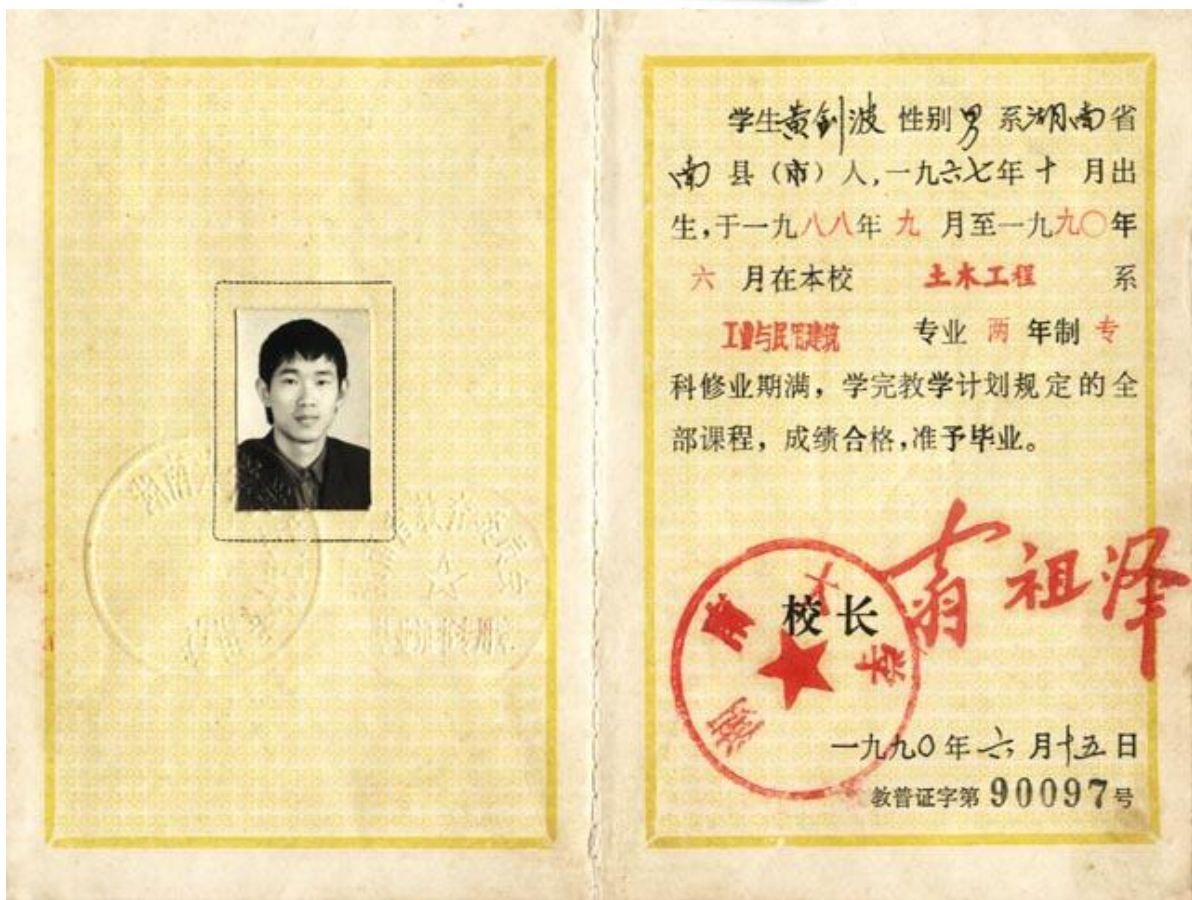 学生黄剑波 性别男 系湖南省
南 县（市）人,一九六七年十 月出
生,于一九八八年 九 月至一九九〇年
六 月在本校 土木工程 系
工业与民用建筑 专业 两 年制 专
科修业期满，学完教学计划规定的全
部课程，成绩合格,准予毕业。
校长 翁祖泽
湖南大学
一九九〇年六月十五日
教普证字第 90097号